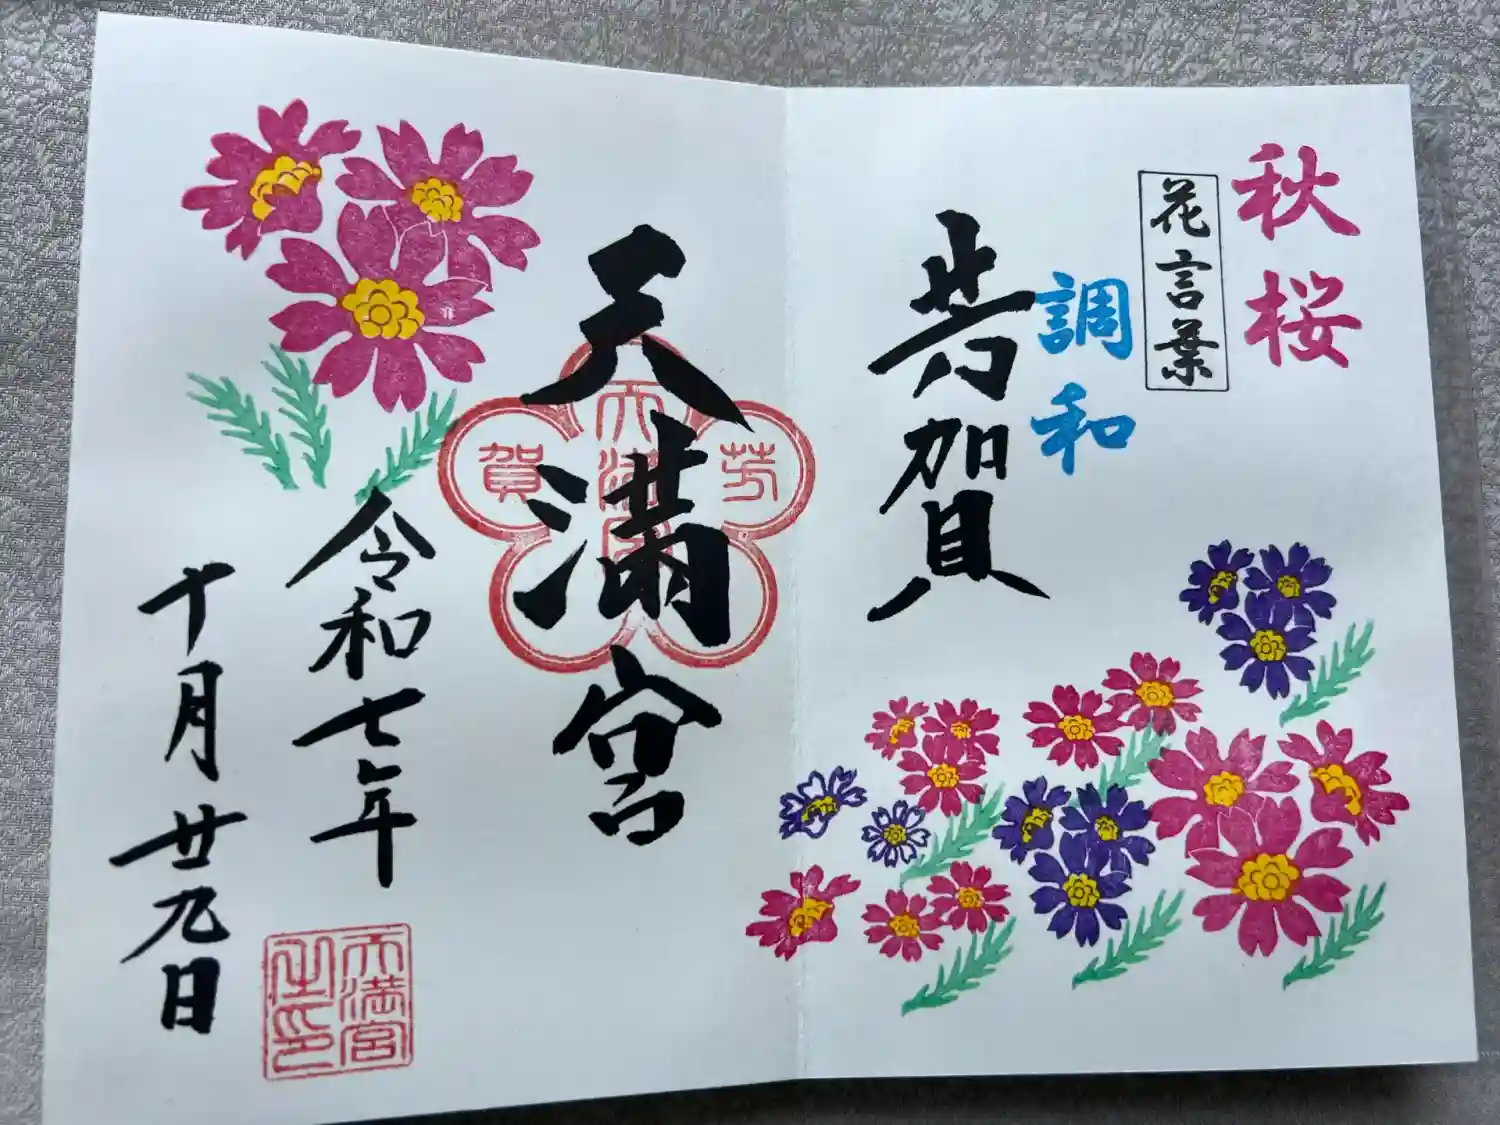 秋桜
花言葉
調和
芳賀
天満宮
芳
賀
天満宮
令和七年
十月廿九日
天満宮